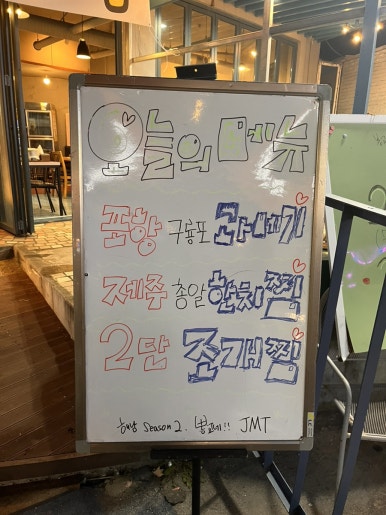 오늘의 메뉴
포항 구룡포 과메기
제주 총알 한치찜
2단 조개찜
season 2. JMT